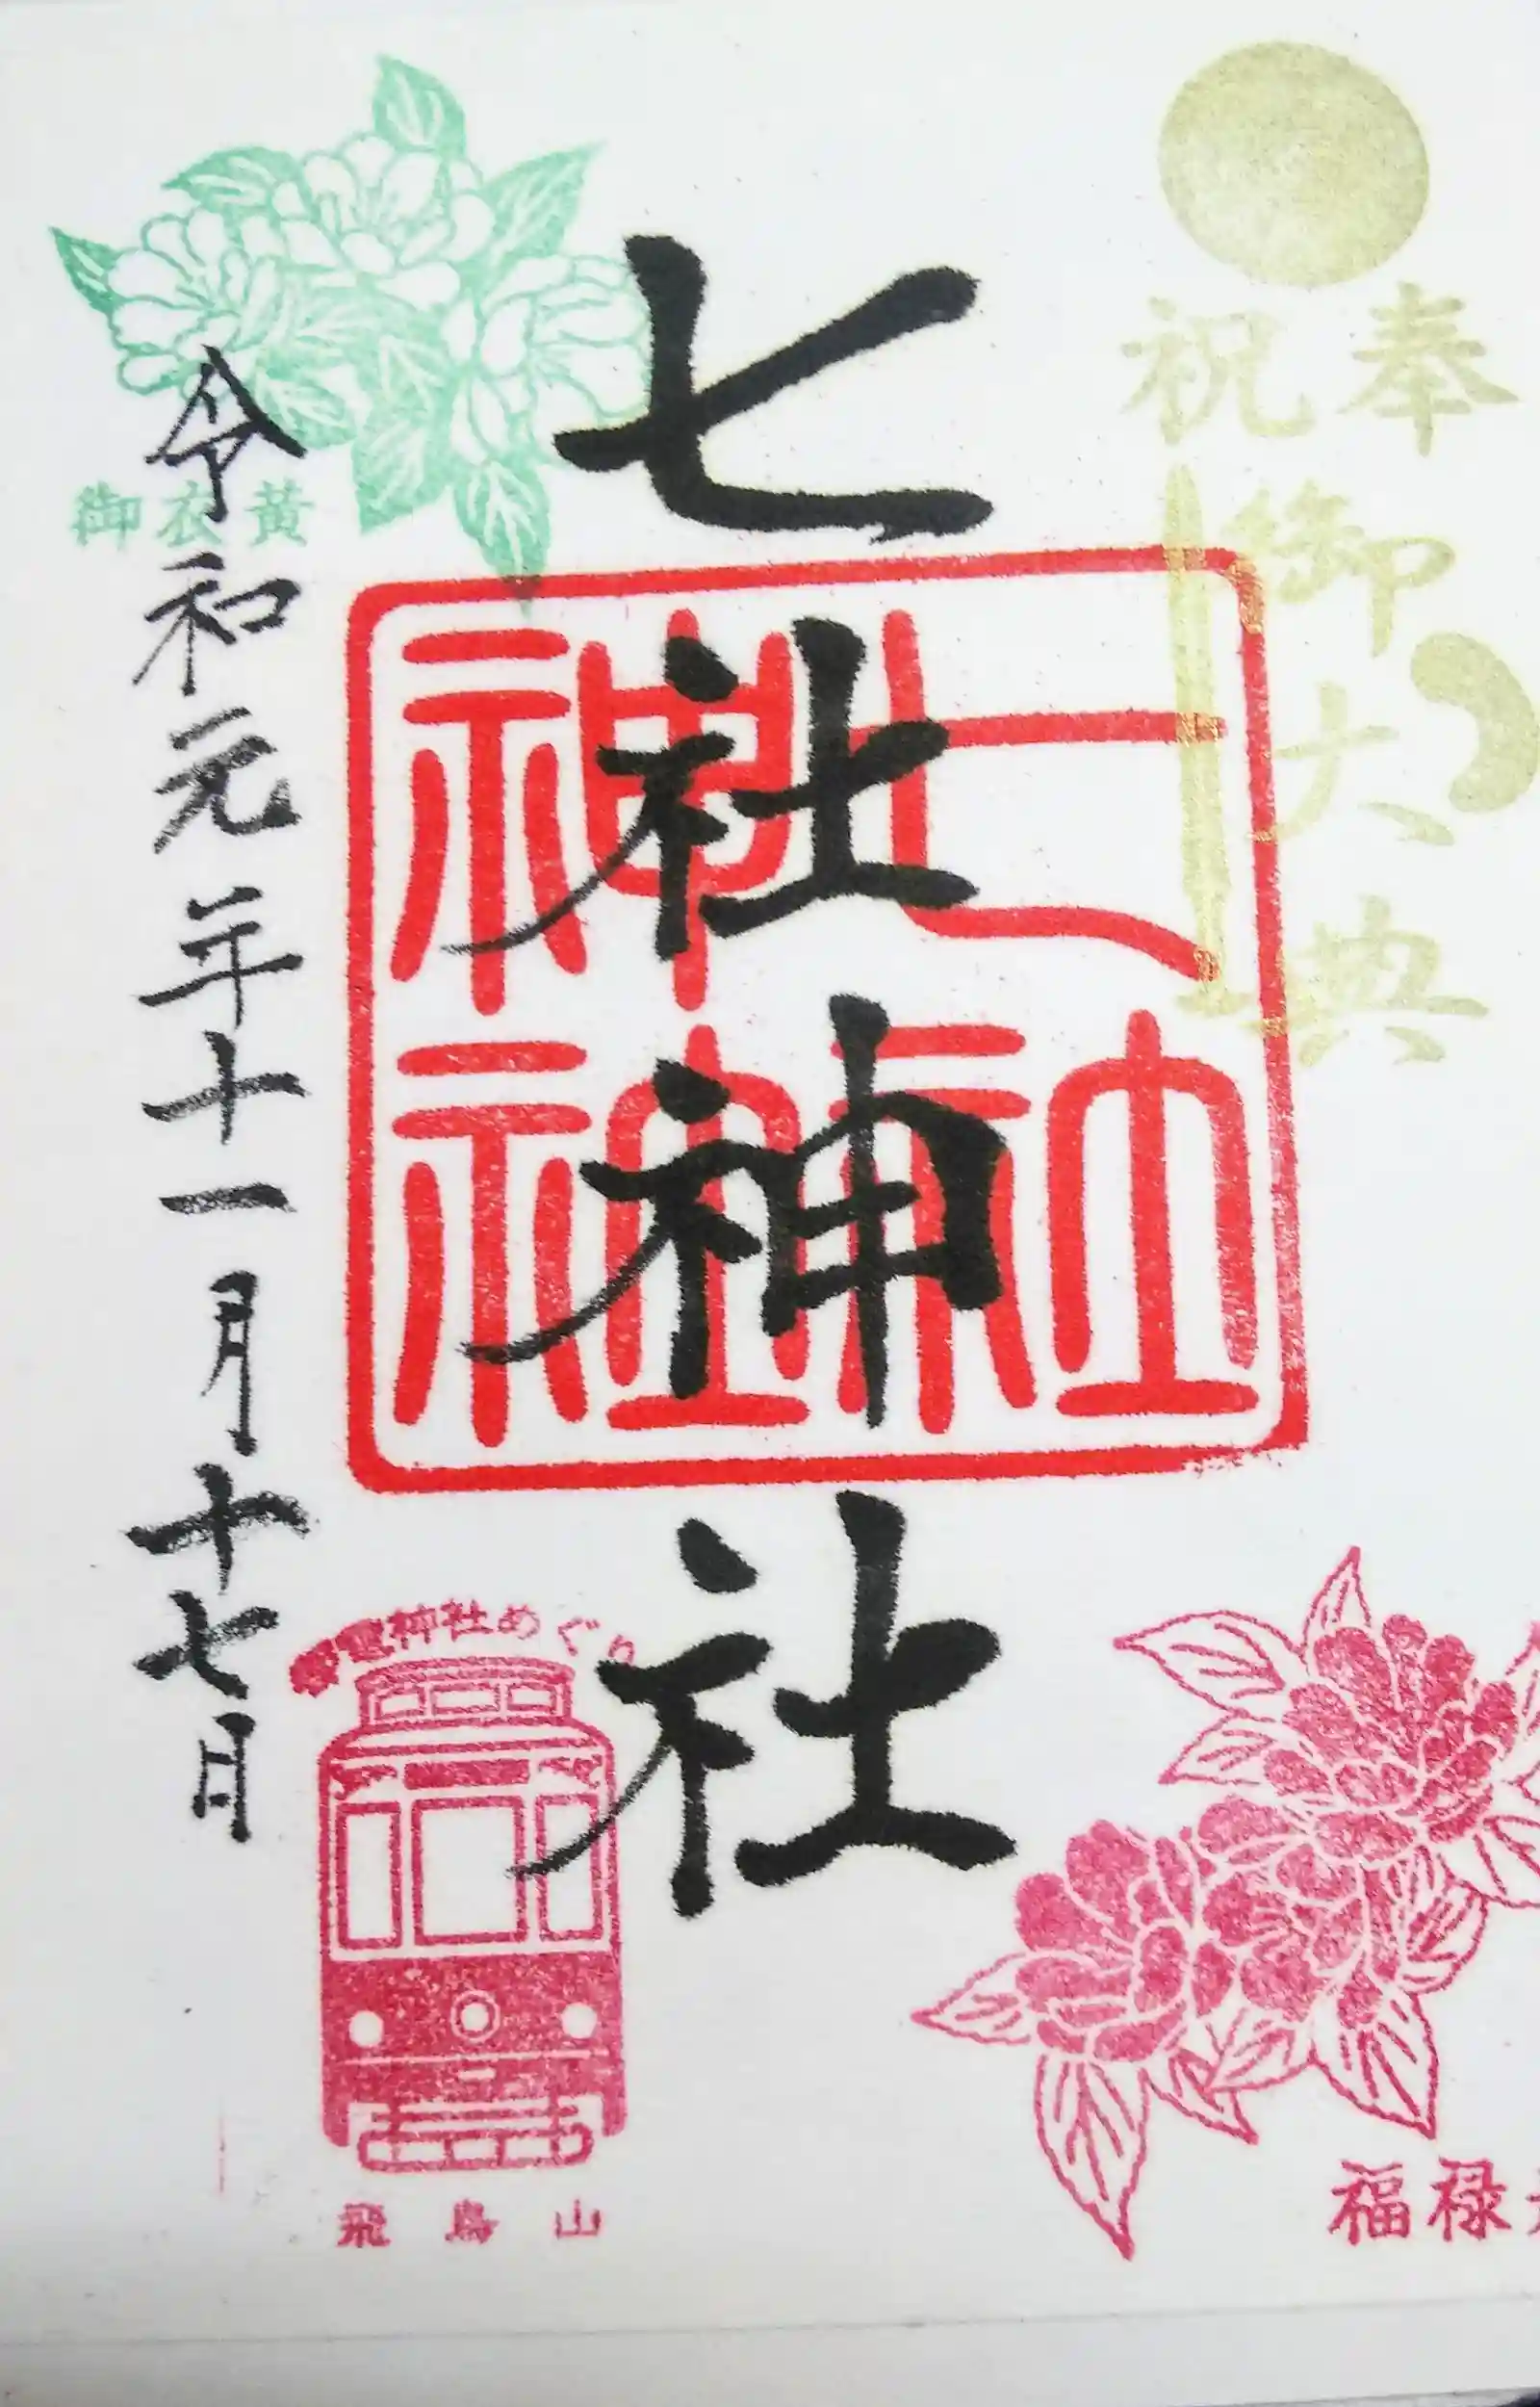 奉祝
御大典
七社神社
七社神社神社
令和元年十一月十七日
御衣黄
電神社めぐり
飛鳥山
福禄